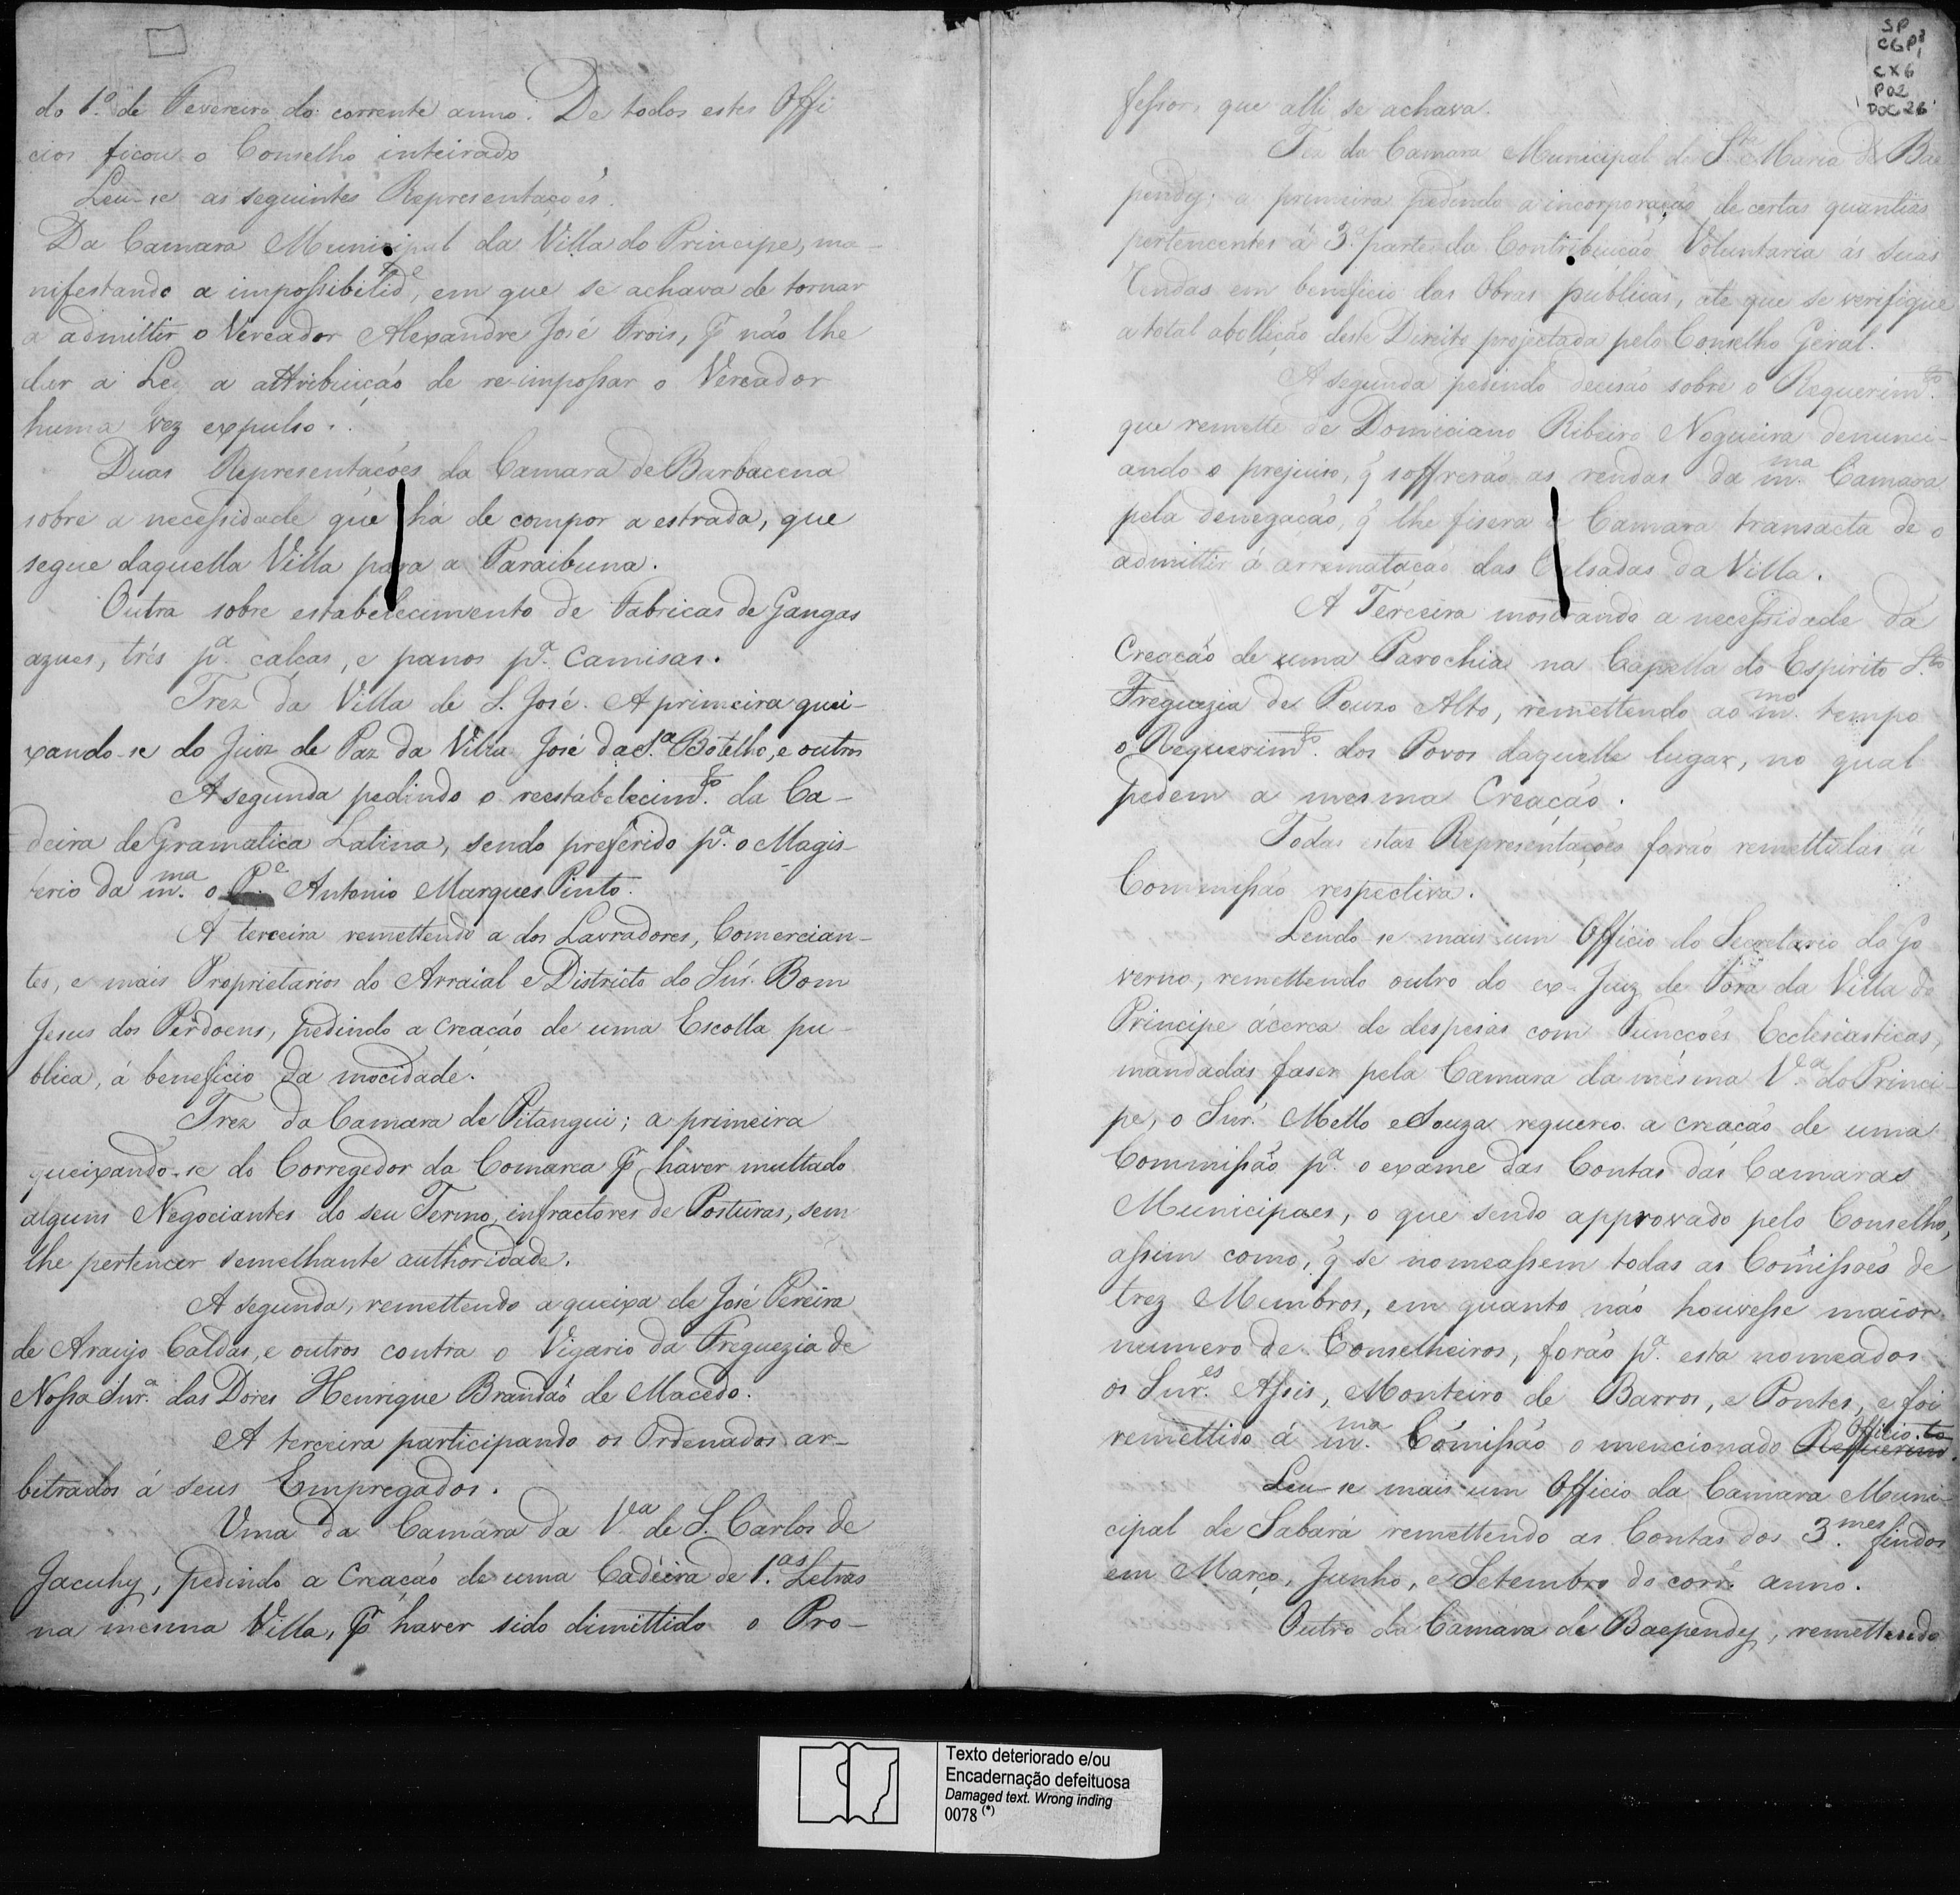 do 1.º de Fevereiro do corrente anno. De todos estes Offi
cios ficou o Conselho inteirado
Leu-se as seguintes Representações.
Da Camara Municipal da Villa do Principe, ma-
nifestando a impossibilid.e, em que se achava de tornar
a admittir o Vereador Alexandre José Frois, p.r não lhe
dar a Ley a attribuição de re-impossar o Vereador
huma vez expulso.
Duas Representacões da Camara de Barbacena
sobre a necessidade que há de compor a estrada, que
segue daquella Villa para a Paraibuna.
Outra sobre estabelecimento de Fabricas de Gangas
azues, três p.a calcas, e panos p.a Camisas.
Trez da Villa de S. José. A primeira quei-
xando-se do Juiz de Paz da Villa José da S.a Botelho, e outros
A segunda pedindo o reestabelecim.to da Ca-
deira de Gramatica Latina, sendo preferido p.a o Magis-
terio da m.ma o P.e Antonio Marques Pinto.
A terceira remettendo a dos Lavradores, Comercian-
tes, e mais Proprietarios do Arraial e Districto do Snr. Bom
Jesus dos Perdoens, pedindo a creacão de uma Escolla pu-
blica, á beneficio da mocidade.
Trez da Camara de Pitangui; a primeira
queixando-se do Corregedor da Comarca p.r haver multado
alguns Negociantes do seu Termo, infractores de Posturas, sem
lhe pertencer semelhante authoridade.
A segunda, remettendo a queixa de José Pereira
de Araujo Caldas, e outros contra o Vigario da Freguezia de
Nossa Snr.a das Dores Henrique Brandão de Macedo.
A terceira participando os Ordenados ar-
bitrados á seus Empregados.
Uma da Camara da V.a de S. Carlos de
Jacuhy, pedindo a Creacão de uma Cadeira de 1.as Letras
na mesma Villa, p.r haver sido dimittido o Pro-
SP
CGP1
CX6
P02
DOC 26
fessor, que alli se achava.
Trez da Camara Municipal de S.ta Maria de Bae
pendy; a primeira pedindo a incorporação de certas quantias
pertencentes á 3.a parte da Contribuicão Voluntaria ás suas
Rendas em beneficio das Obras publicas, até que se verifique
a total abollição deste Direito projectada pelo Conselho Geral.
A segunda pedindo decisão sobre o Requerim.to
que remette de Domiciano Ribeiro Nogueira denunci-
ando o prejuiso, q̃ soffrerão as rendas da m.ma Camara
pela denegação, q̃ lhe fisera a Camara transacta de o
admittir á arrematacão das Calsadas da Villa.
A Terceira mostrando a necessidade da
Creacão de uma Parochia na Capella do Espirito S.to
Freguezia de Pouzo Alto, remettendo ao m.mo tempo
o Requerim.to dos Povos daquelle lugar, no qual
pedem a mesma Creacão.
Todas estas Representações forão remettidas á
Commissão respectiva.
Lendo-se mais um Officio do Secretario do Go
verno, remettendo outro do ex-Juiz de Fora da Villa do
Principe ácerca de despesas com Funccões Ecclesiasticas,
mandadas faser pela Camara da mesma V.a do Princi-
pe, o Snr. Mello e Souza requereo a creacão de uma
Commissão p.a o exame das Contas das Camaras
Municipaes, o que sendo approvado pelo Conselho,
assim como, q̃ se nomeassem todas as Comissões de
trez Membros, em quanto não houvesse maior
numero de Conselheiros, forão p.a esta nomeados
os Snr.es Assis, Monteiro de Barros, e Pontes, e foi
remettido á m.ma Comissão o mencionado Requerim.to Officio.
Leu-se mais um Officio da Camara Muni-
cipal de Sabará remettendo as Contas dos 3.mes findos
em Março, Junho, e Setembro do corr.e anno.
Outro da Camara de Baependy, remettendo
Texto deteriorado e/ou
Encadernação defeituosa
Damaged text. Wrong inding
0078 (*)